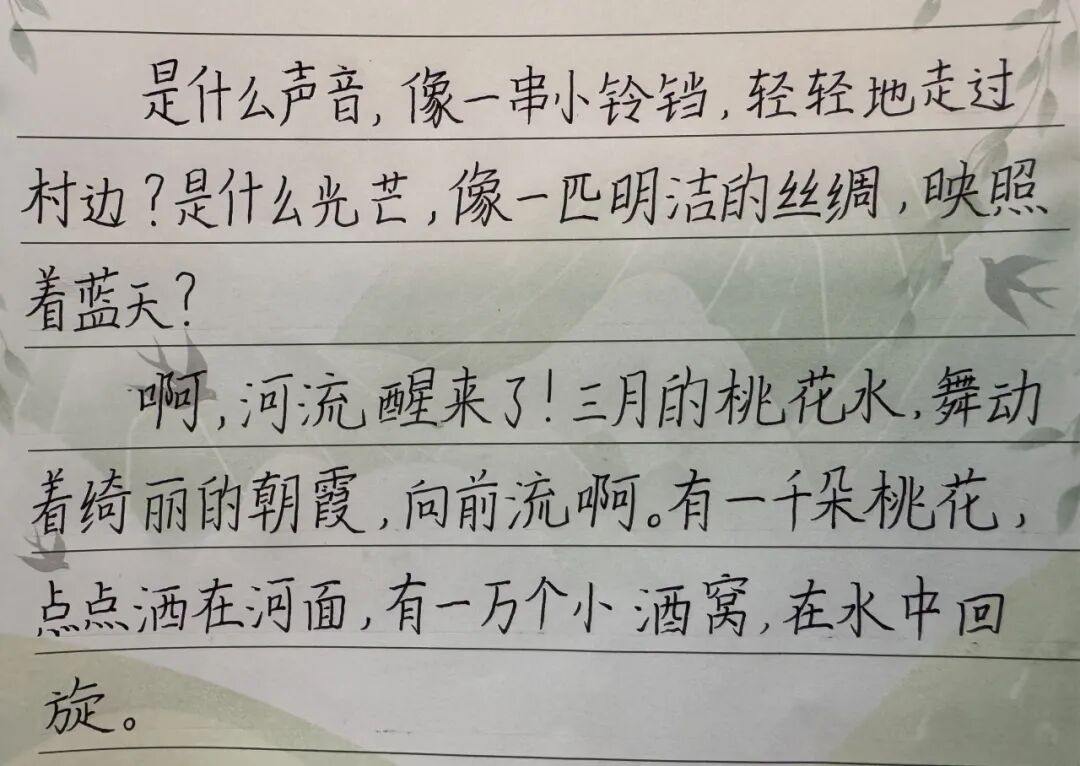 是什么声音,像一串小铃铛,轻轻地走过
村边?是什么光芒,像一匹明洁的丝绸,映照
着蓝天?
啊,河流醒来了!三月的桃花水,舞动
着绮丽的朝霞,向前流啊。有一千朵桃花,
点点洒在河面,有一万个小酒窝,在水中回
旋。